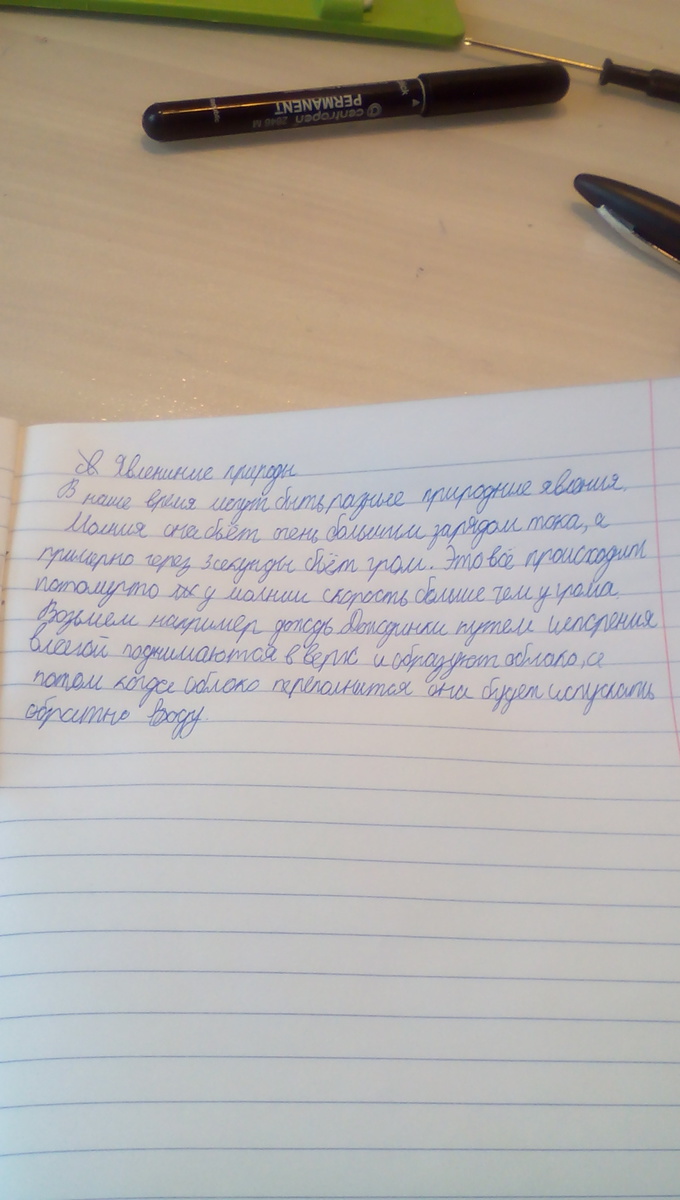 centropen 2846 M
PERMANENT
Явлениние природы
В наше время могут быть разные природные явания.
Молния она бьёт очень большим зарядом тока, а
примерно через 3 секунды бьёт гром. Это всё происходит
потомучто у молнии скорость больше чем у грома.
Возьмем например дождь. Дождинки путем испорения
влагой поднимаются в верх и образуют облако, а
потом когда облако переполнится она будет испускать
обратно воду.